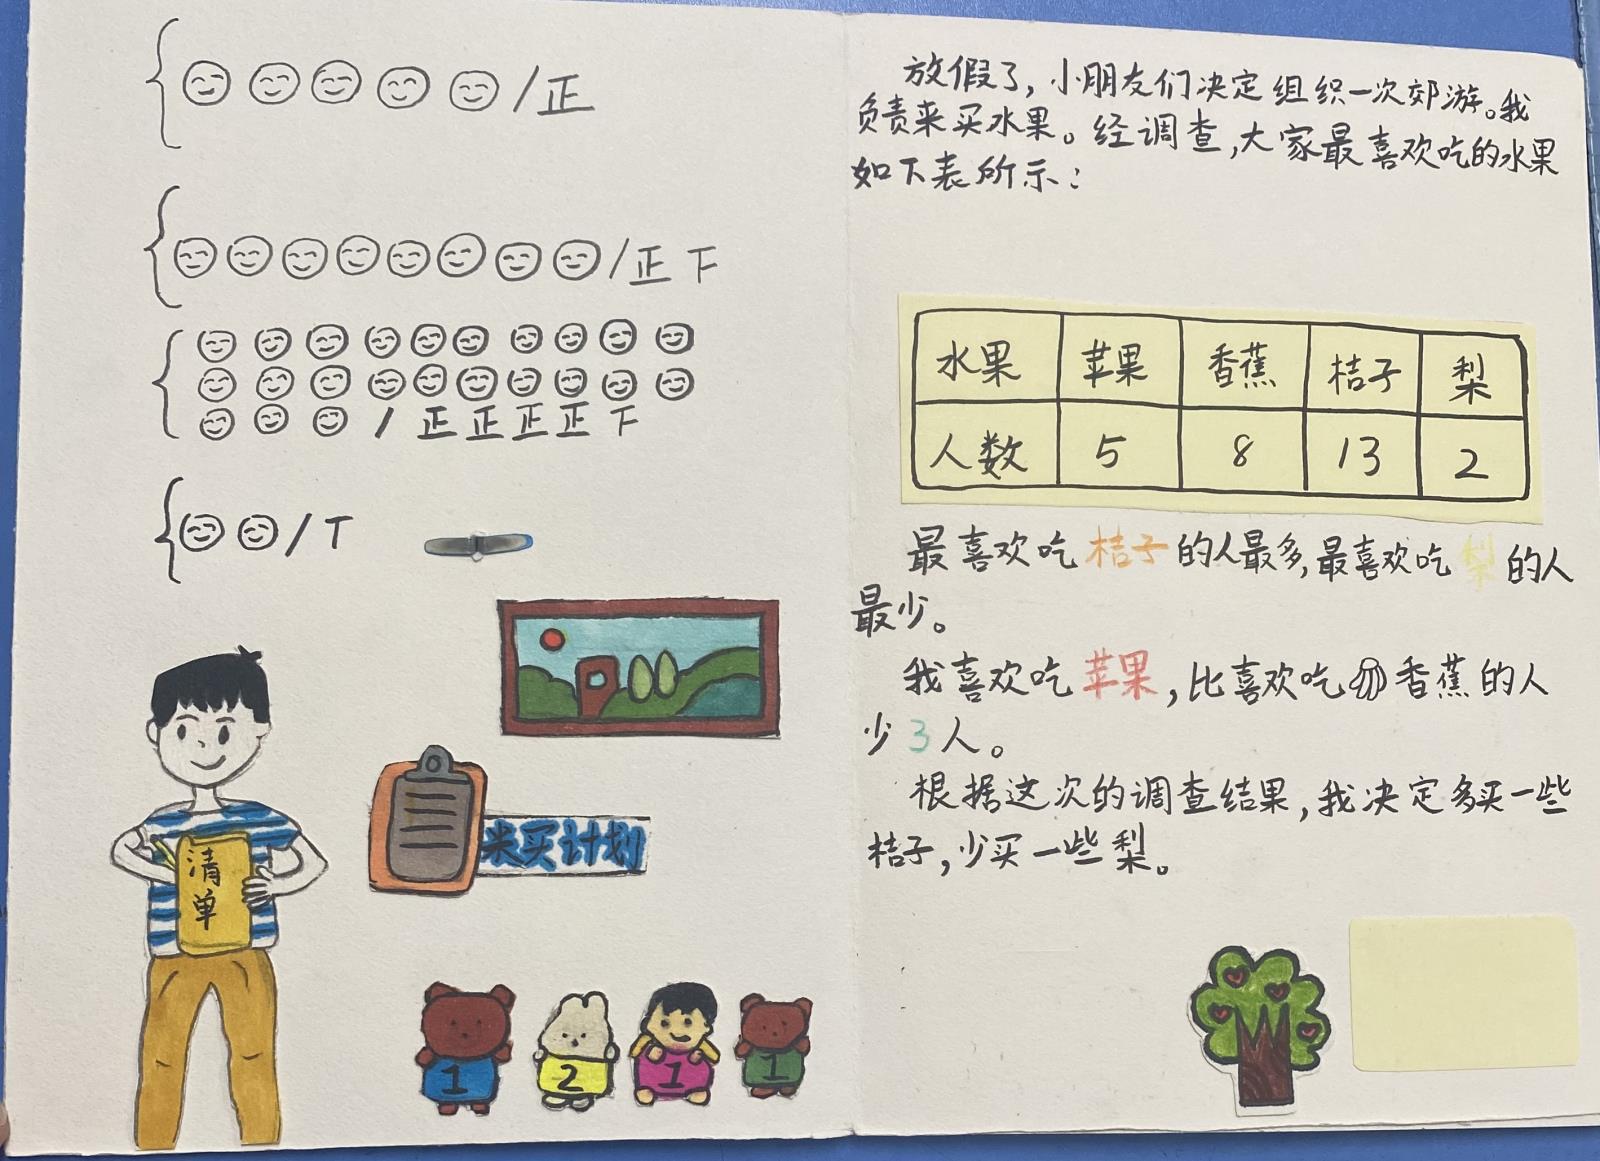 /正
/正 下
/ 正 正 正 正 下
/ T
清单
米买计划
1 2 1 1
放假了,小朋友们决定组织一次郊游。我
负责来买水果。经调查,大家最喜欢吃的水果
如下表所示:
水果 苹果 香蕉 桔子 梨
人数 5 8 13 2
最喜欢吃桔子的人最多,最喜欢吃梨的人
最少。
我喜欢吃苹果,比喜欢吃香蕉的人
少3人。
根据这次的调查结果,我决定多买一些
桔子,少买一些梨。